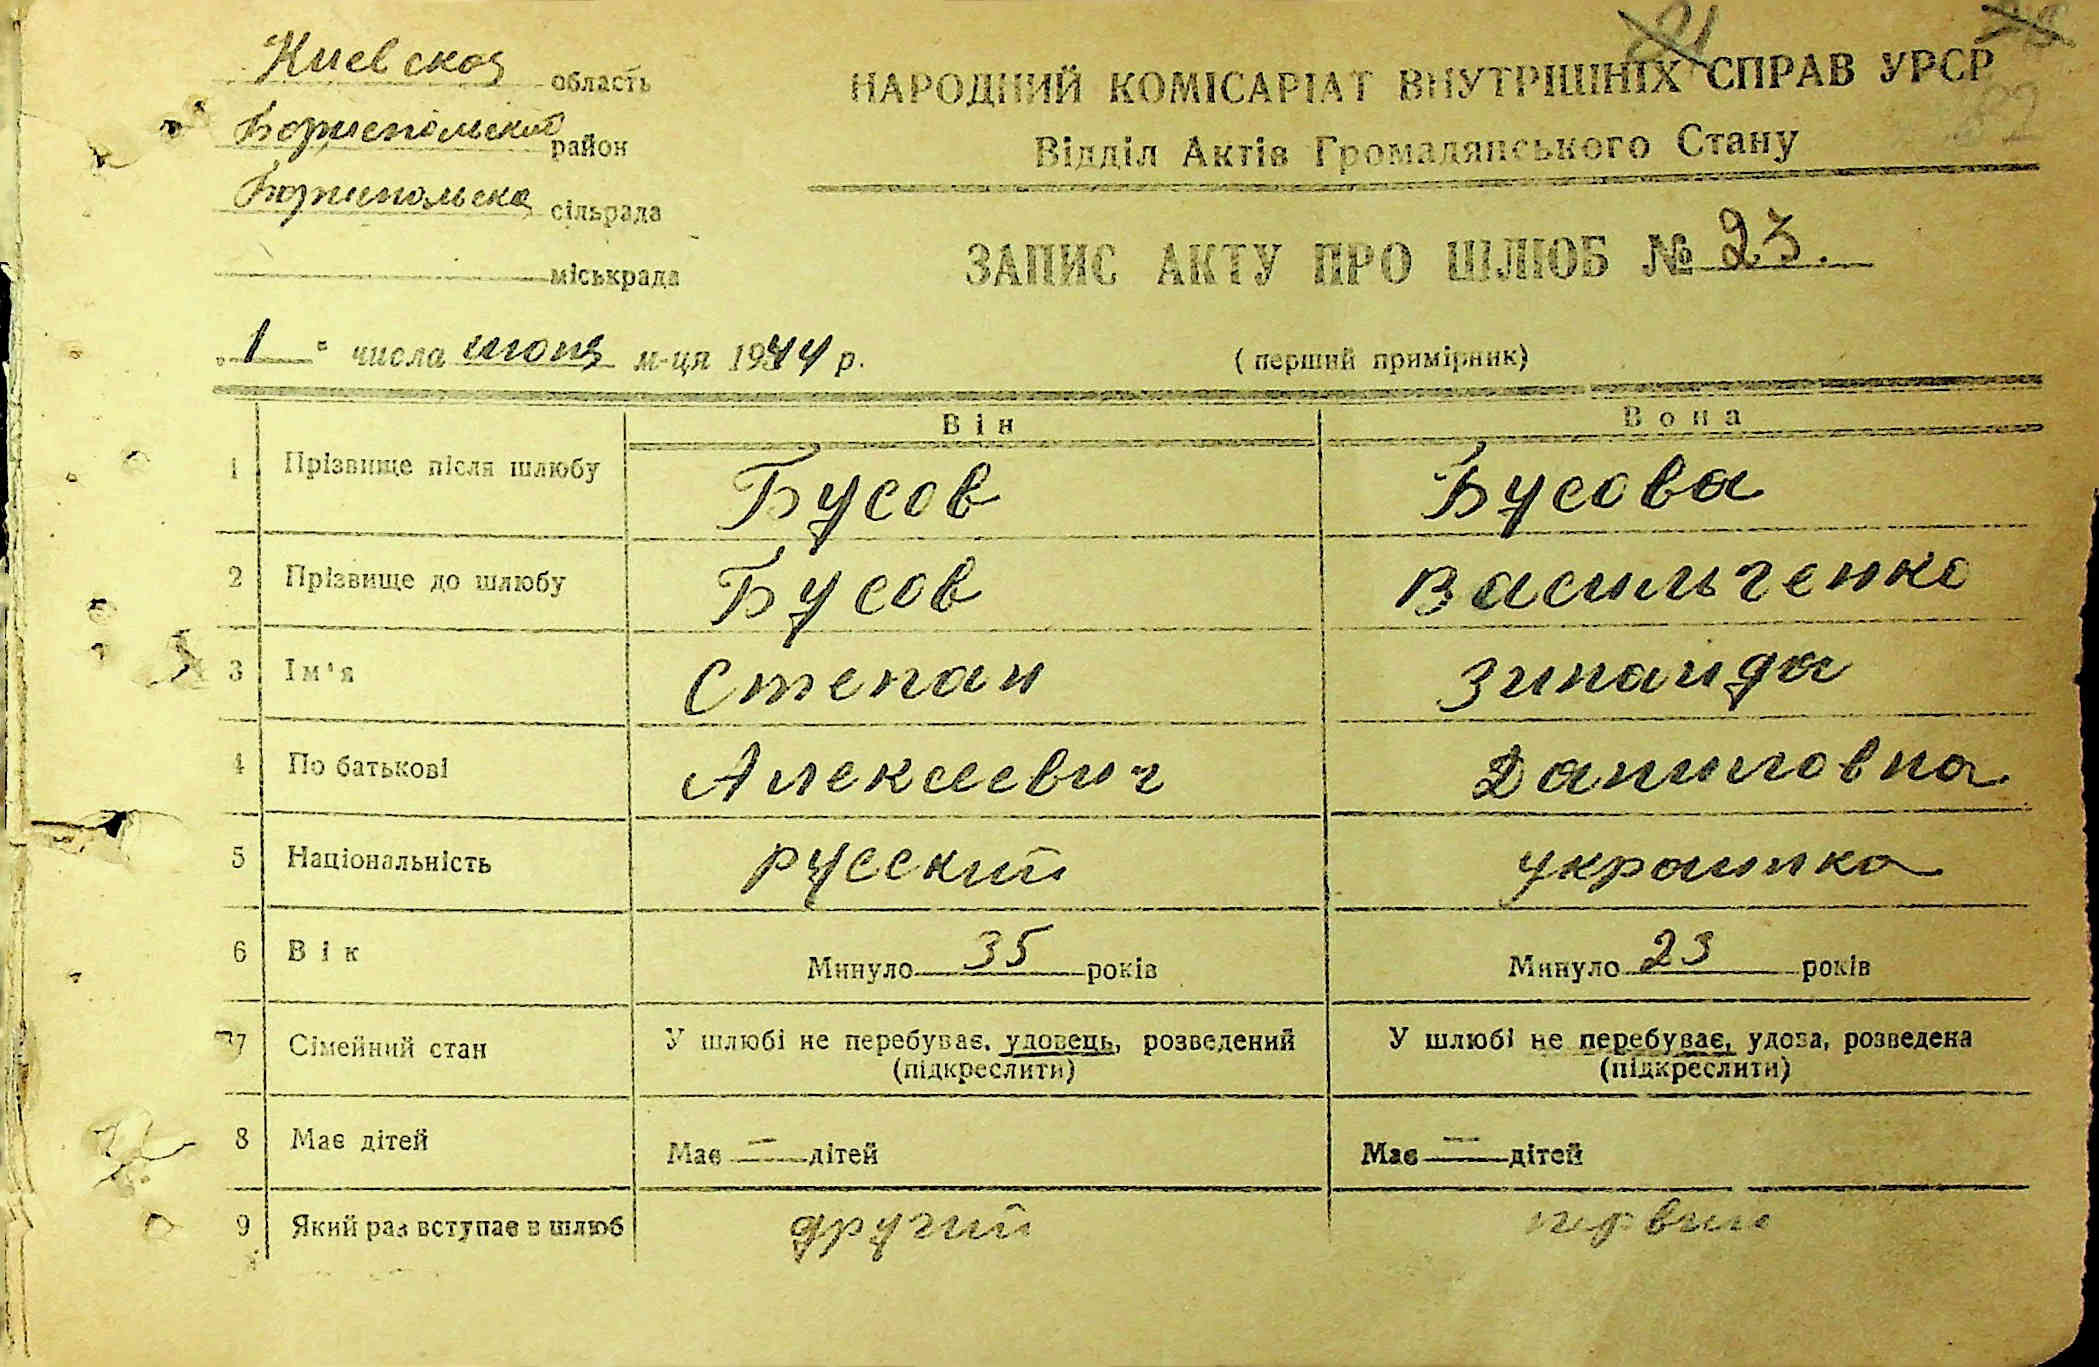 Киевская область
Бориспольский район
Борисполька сільрада
міськрада
НАРОДНИЙ КОМІСАРІАТ ВНУТРІШНІХ СПРАВ УРСР
Відділ Актів Громадянського Стану
ЗАПИС АКТУ ПРО ШЛЮБ № 23.
„1“ числа июня м-ця 1944 р.
(перший примірник)
Він Вона
1 Прізвище після шлюбу Бусов Бусова
2 Прізвище до шлюбу Бусов Васильченко
3 Ім'я Степан Зинаида
4 По батькові Алексеевич Даниловна
5 Національність русский украинка
6 Вік Минуло 35 років Минуло 23 років
7 Сімейний стан У шлюбі не перебуває, удовець, розведений У шлюбі не перебуває, удова, розведена
(підкреслити) (підкреслити)
8 Має дітей Має — дітей Має — дітей
9 Який раз вступає в шлюб другий первий